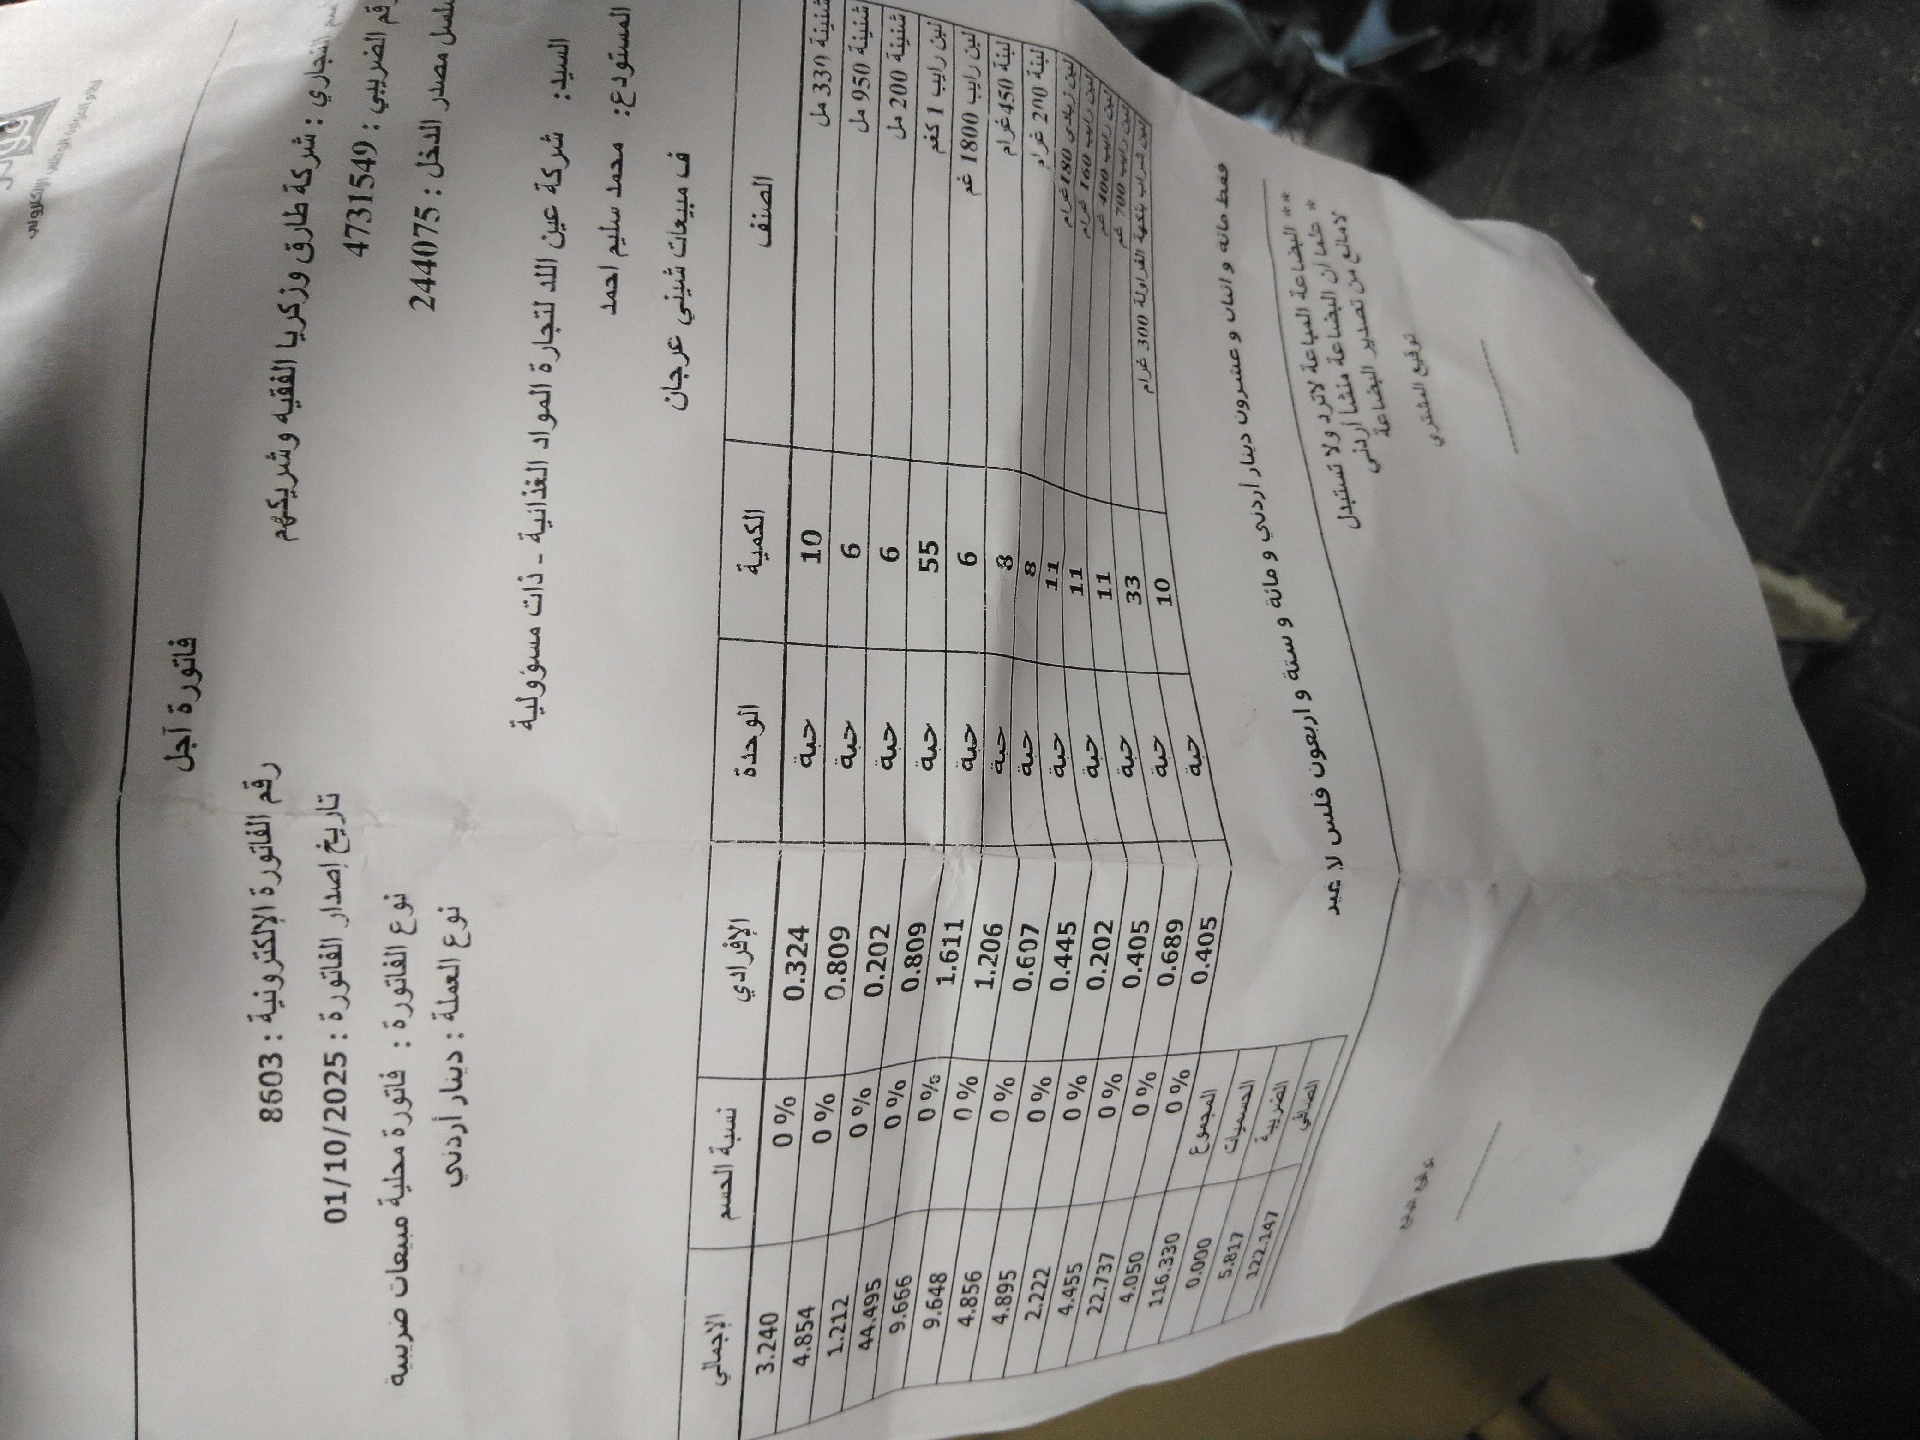 نظام الفوترة الوطني الإلكتروني
فاتورة آجل
الاسم التجاري : شركة طارق وزكريا الفقيه وشريكهم
رقم الفاتورة الإلكترونية : 8603
الرقم الضريبي : 4731549
تاريخ إصدار الفاتورة : 01/10/2025
تسلسل مصدر الدخل : 244075
نوع الفاتورة : فاتورة محلية مبيعات ضريبية
نوع العملة : دينار أردني
السيد: شركة عين اللد لتجارة المواد الغذائية - ذات مسؤولية
المستودع: محمد سليم احمد
ف مبيعات شيني عرجان
الصنف الكمية الوحدة الإفرادي نسبة الحسم الإجمالي
شنينة 330 مل 10 حبة 0.324 0 % 3.240
شنينة 950 مل 6 حبة 0.809 0 % 4.854
شنينة 200 مل 6 حبة 0.202 0 % 1.212
لبن رايب 1 كغم 55 حبة 0.809 0 % 44.495
لبن رايب 1800 غم 6 حبة 1.611 0 % 9.666
لبنة 450 غرام 8 حبة 1.206 0 % 9.648
لبنة 200 غرام 8 حبة 0.607 0 % 4.856
لبن زبادي 180 غرام 11 حبة 0.445 0 % 4.895
لبن رايب 160 غرام 11 حبة 0.202 0 % 2.222
لبن رايب 400 غم 11 حبة 0.405 0 % 4.455
لبن رايب 700 غم 33 حبة 0.689 0 % 22.737
لبن شراب بنكهة الفراولة 300 غرام 10 حبة 0.405 0 % 4.050
المجموع 116.330
الحسميات 0.000
الضريبة 5.817
الصافي 122.147
فقط مائة و اثنان و عشرون دينار أردني و مائة و ستة و اربعون فلس لا غير
** البضاعة المباعة لاترد ولا تستبدل
* علما ان البضاعة منشأ أردني
لامانع من تصدير البضاعة
توقيع المشتري
توقيع البائع